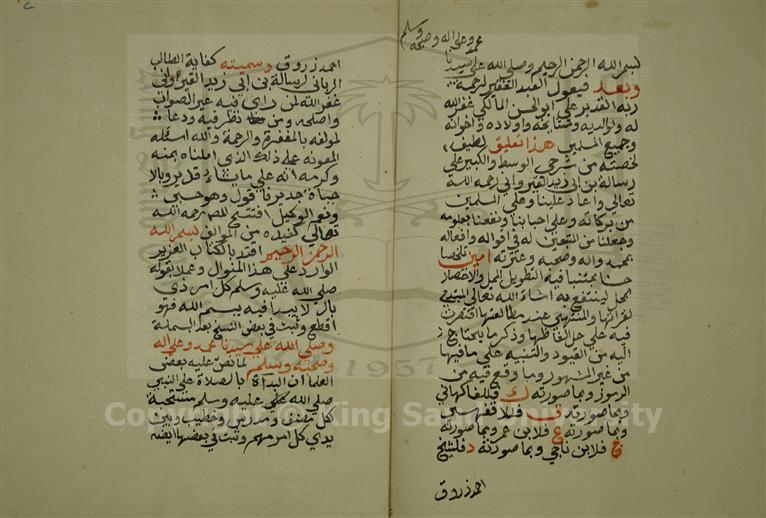 محمد وعلى اله وصحبه وسلم
بسم الله الرحمن الرحيم وصلى الله على سيدنا
وبعد فيقول العبد الفقير لرحمة
ربه القدير علي ابو الحسن المالكي غفر الله
له ولوالديه ومشايخه واولاده واخوانه
وجميع المسلمين هذا تعليق لطيف
لخصته من شرحي الوسط والكبير على
رسالة بن ابي زيد القيرواني رحمه الله
تعالى واعاد علينا وعلى المسلمين
من بركاته وعلى احبابنا ونفعنا بعلومه
وجعلنا من المتبعين له في اقواله وافعاله
بمحمد واله وصحبه وعترته امين ملخصا
مجتنبا فيه التطويل الممل والاختصار
المخل لينتفع به ان شاء الله تعالى المبتدي
لقراتها والمنتهي عند مطالعتها اقتصرت
فيه على حل الفاظها وذكر ما يحتاج
اليه من القيود والتنبيه على ما فيها
من غير المشهور وما وقع فيه من
الرموز وبما صورته ك فللفاكهاني
وبما صورته ق فللاقفهسي
وبما صورته ع فلابن عمر وبما صورته
ج فلابن ناجي وبما صورته د فللشيخ
احمد زروق
احمد زروق وسميته كفاية الطالب
الرباني لرسالة بن ابي زيد القيرواني
غفر الله لمن راى فيه غير الصواب
واصلحه ومن نظر فيه ودعا
لمولفه بالمغفرة والرحمة والله اسئله
المعونة على ذلك الذي املناه بمنه
وكرمه انه على ما يشاء قدير وبالاجابة
جدير فاقول وهو حسبي
ونعم الوكيل افتتح المص رحمه الله
تعالى كغيره من المولفين بسم الله
الرحمن الرحيم اقتدا بالكتاب العزيز
الوارد على هذا المنوال وعملا بقوله
صلى الله عليه وسلم كل امر ذي
بال لا يبدا فيه ببسم الله فهو
اقطع وثبت في بعض النسخ بعد البسملة
وصلى الله على سيدنا محمد وعلى اله
وصحبه وسلم لما نص عليه بعض
العلما ان البداة بالصلاة على النبي
صلى الله عليه وسلم مستحبة
لكل مصنف ومدرس وخطيب وبين
يدي كل امر مهم وثبت في بعضها ايضا
Copyright © King Saud University
1957